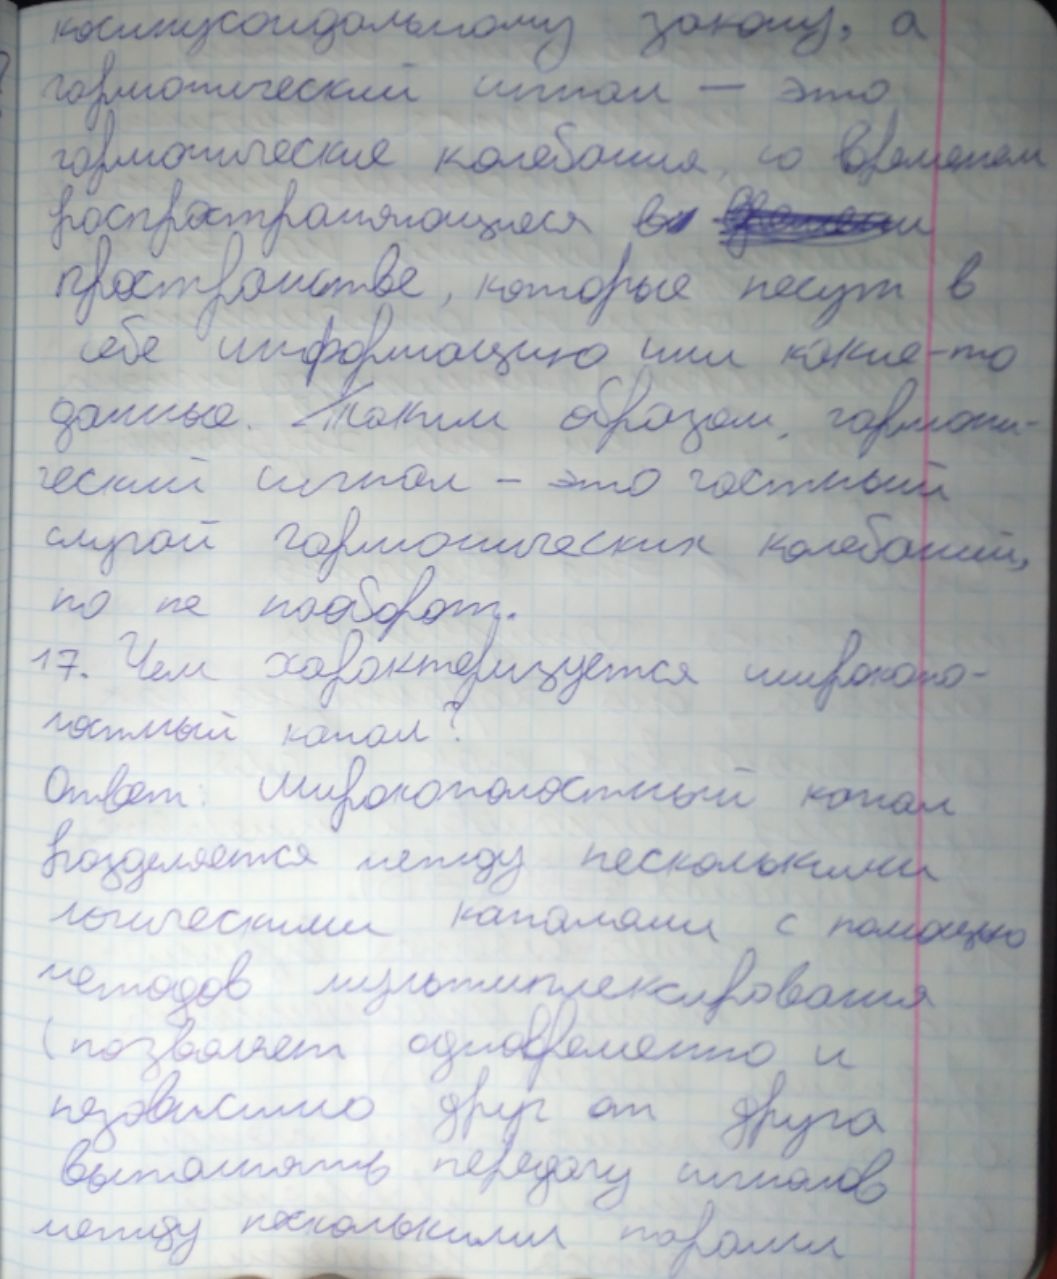 косинусоидальному закону, а
гармонический сигнал — это
гармонические колебания, со временем
распространяющиеся в
пространстве, которые несут в
себе информацию или какие-то
данные. Таким образом, гармони-
ческий сигнал – это частный
случай гармонических колебаний,
но не наоборот.
17. Чем характеризуется широкопо-
лостный канал?
Ответ: Широкополостный канал
разделяется между несколькими
логическими каналами с помощью
методов мультиплексирования
(позволяет одновременно и
независимо друг от друга
выполнять передачу сигналов
между несколькими парами